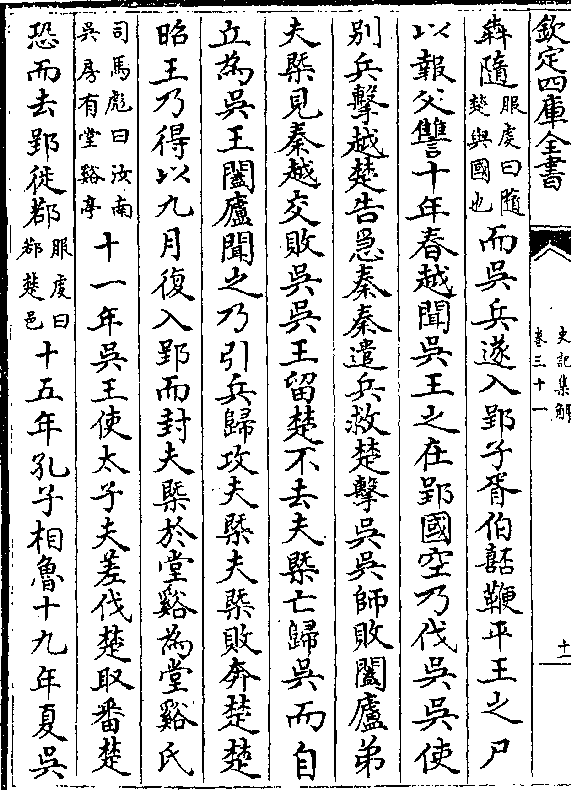 欽定四庫全書
史記集解
卷三十一
十一
犇隨服虔曰隨楚與國也而吳兵遂入郢子胥伯嚭鞭平王之尸
以報父讐十年春越聞吳王之在郢國空乃伐吳吳使
别兵擊越楚告急秦秦遣兵救楚擊吳吳師敗闔廬弟
夫槩見秦越交敗吳吳王留楚不去夫槩亡歸吳而自
立為吳王闔廬聞之乃引兵歸攻夫槩夫槩敗奔楚楚
昭王乃得以九月復入郢而封夫槩於堂谿為堂谿氏
司馬彪曰汝南吳房有堂谿亭十一年吳王使太子夫差伐楚取番楚
恐而去郢徙鄀服虔曰鄀楚邑十五年孔子相魯十九年夏吳